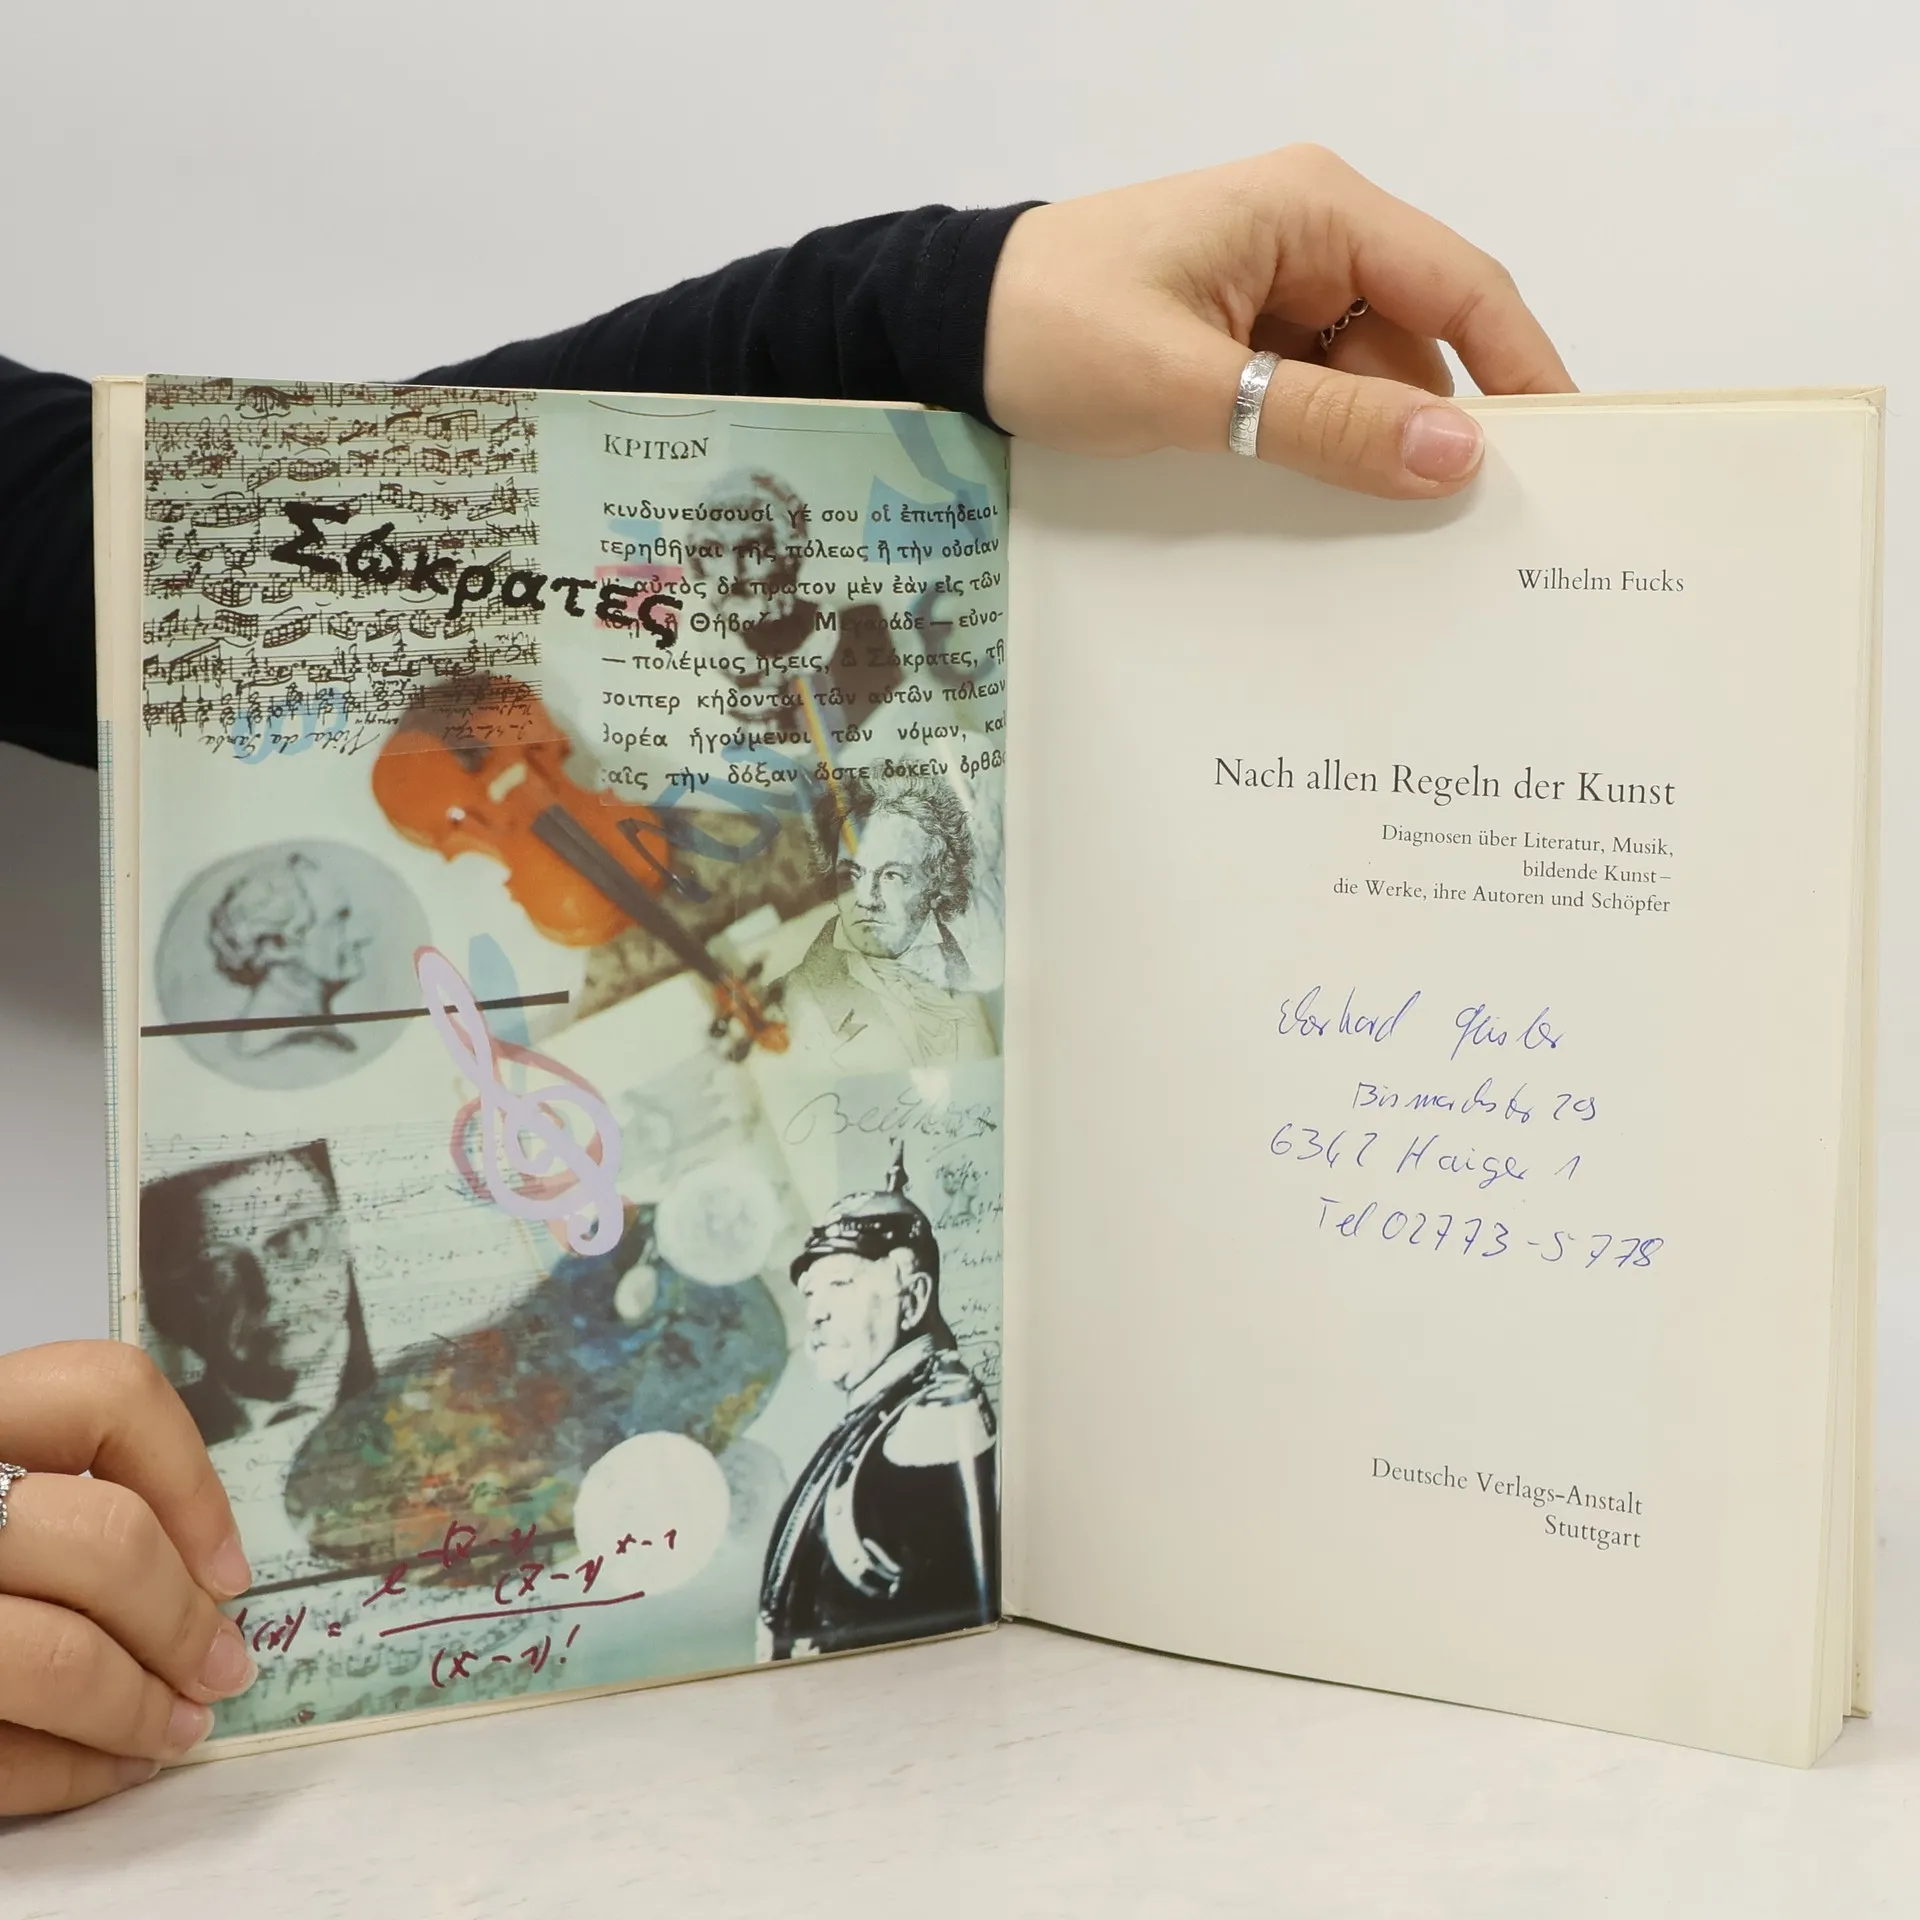 ΚΡΙΤΩΝ
κινδυνεύσουσί γέ σου οἱ ἐπιτήδειοι
τερηθῆναι τῆς πόλεως ἢ τὴν οὐσίαν
αὐτὸς δὲ πρῶτον μὲν ἐὰν εἰς τῶν
Θήβα Μεγαράδε — εὐνο-
— πολέμιος ἥξεις, ὦ Σώκρατες, τῇ
σοιπερ κήδονται τῶν αὑτῶν πόλεων
φορέα ἡγούμενοι τῶν νόμων, καὶ
αῖς τὴν δόξαν ὥστε δοκεῖν ὀρθῶς
Σώκρατες
Viola da Gamba
Beethoven
(x) = e (x-1)
(x-1)!
Wilhelm Fucks
Nach allen Regeln der Kunst
Diagnosen über Literatur, Musik,
bildende Kunst –
die Werke, ihre Autoren und Schöpfer
Eberhard Geisler
Bismarckstr 29
6342 Haiger 1
Tel 02773-5778
Deutsche Verlags-Anstalt
Stuttgart